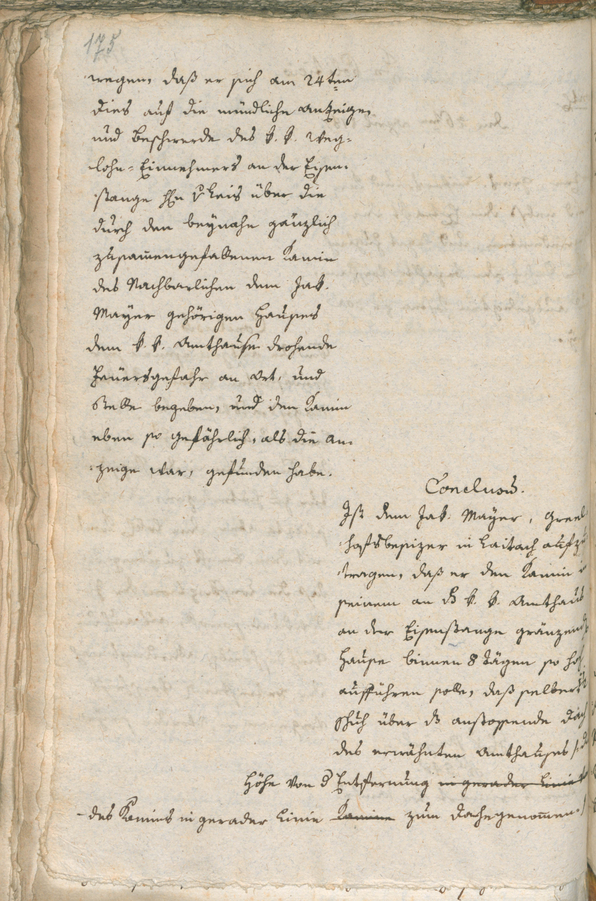 175
wegen, daß er sich am 24ten
dies auf die mündliche Anzeige,
und Beschwerde des k. k. Weg-
lohn-Einnehmers an der Eisen-
stange Hn über die
durch den beynahe gänzlich
zusammengefallenen Kamin
des Nachbarlichen dem Jak.
Mayer gehörigen Hauses
dem k. k. Amthause drohende
Feuersgefahr an Ort, und
Stelle begeben, und den Kamin
eben so gefährlich, als die An-
zeige war, gefunden habe.
Conclusum.
Ist dem Jak. Mayer,
hofsbesizer in Laitach aufzu
tragen, daß er den Kamin
seinem an ds k. k. Amthaus
an der Eisenstange gränzend
Hause binnen 8 Tägen so hoh
aufführen solle, daß selber
Schuh über ds anstossende Dach
des erwähnten Amthauses
Höhe von d Entfernung in gerader Linie
des Kamins in gerader Linie Kamins zum Dache genommen.